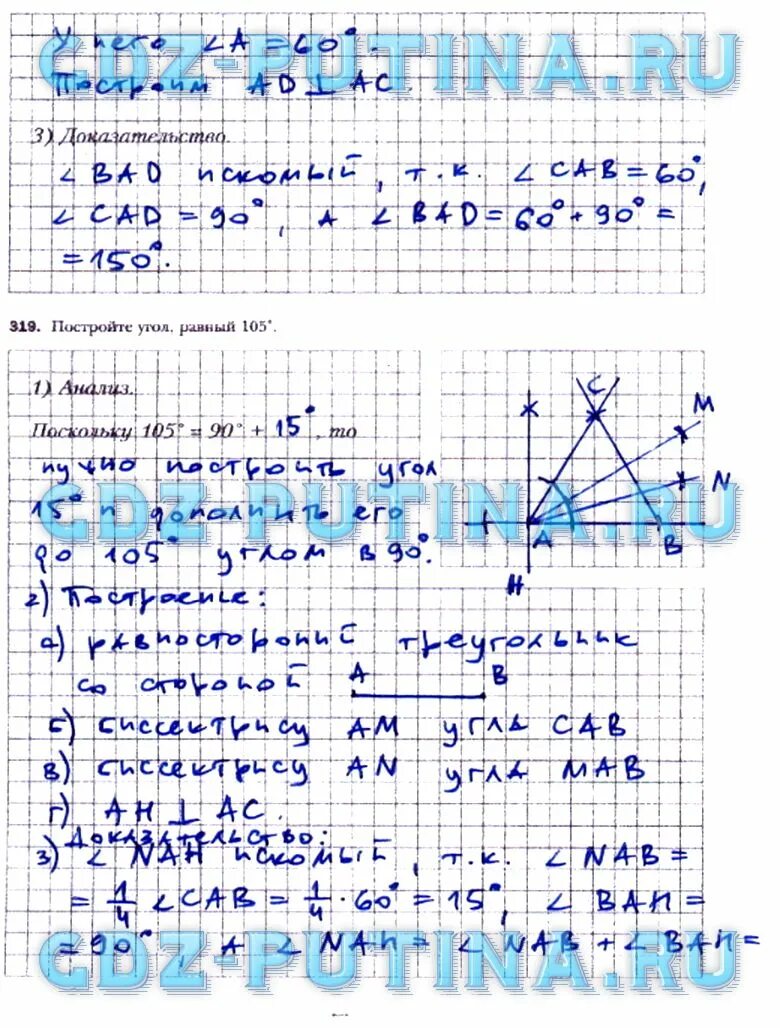 У него ∠A = 60°.
Построим AD ⊥ AC.
3) Доказательство.
∠ BAD искомый, т.к. ∠ CAB = 60°,
∠ CAD = 90°, а ∠ BAD = 60° + 90° =
= 150°.
GDZ-PUTINA.RU
GDZ-PUTINA.RU
319. Постройте угол, равный 105°.
1) Анализ.
Поскольку 105° = 90° + 15°, то
нужно построить угол
15° и дополнить его
до 105° углом в 90°.
C
M
N
A
B
H
GDZ-PUTINA.RU
2) Построение:
а) равносторонний треугольник
со стороной A B
б) биссектрису AM угла CAB
в) биссектрису AN угла MAB
г) AH ⊥ AC.
Доказательство:
3) ∠ NAH искомый, т.к. ∠ NAB =
= 1/4 ∠ CAB = 1/4 · 60° = 15°, ∠ BAH =
= 90°, а ∠ NAH = ∠ NAB + ∠ BAH =
GDZ-PUTINA.RU